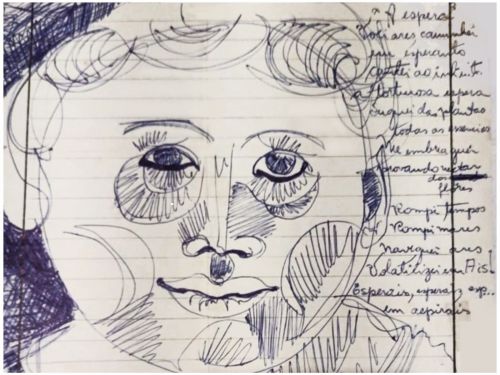 A espera
Por ares caminhei
em esperanto
cantei ao infinit.
a tortuosa espera
suguei das plantas
todas as essências
Me embriaguei
provando néctar
das
flores
Rompi tempos
Rompi mares
naveguei ares
Volatilizei em Ais!
Esperais, esperais, esp...
em aspirais